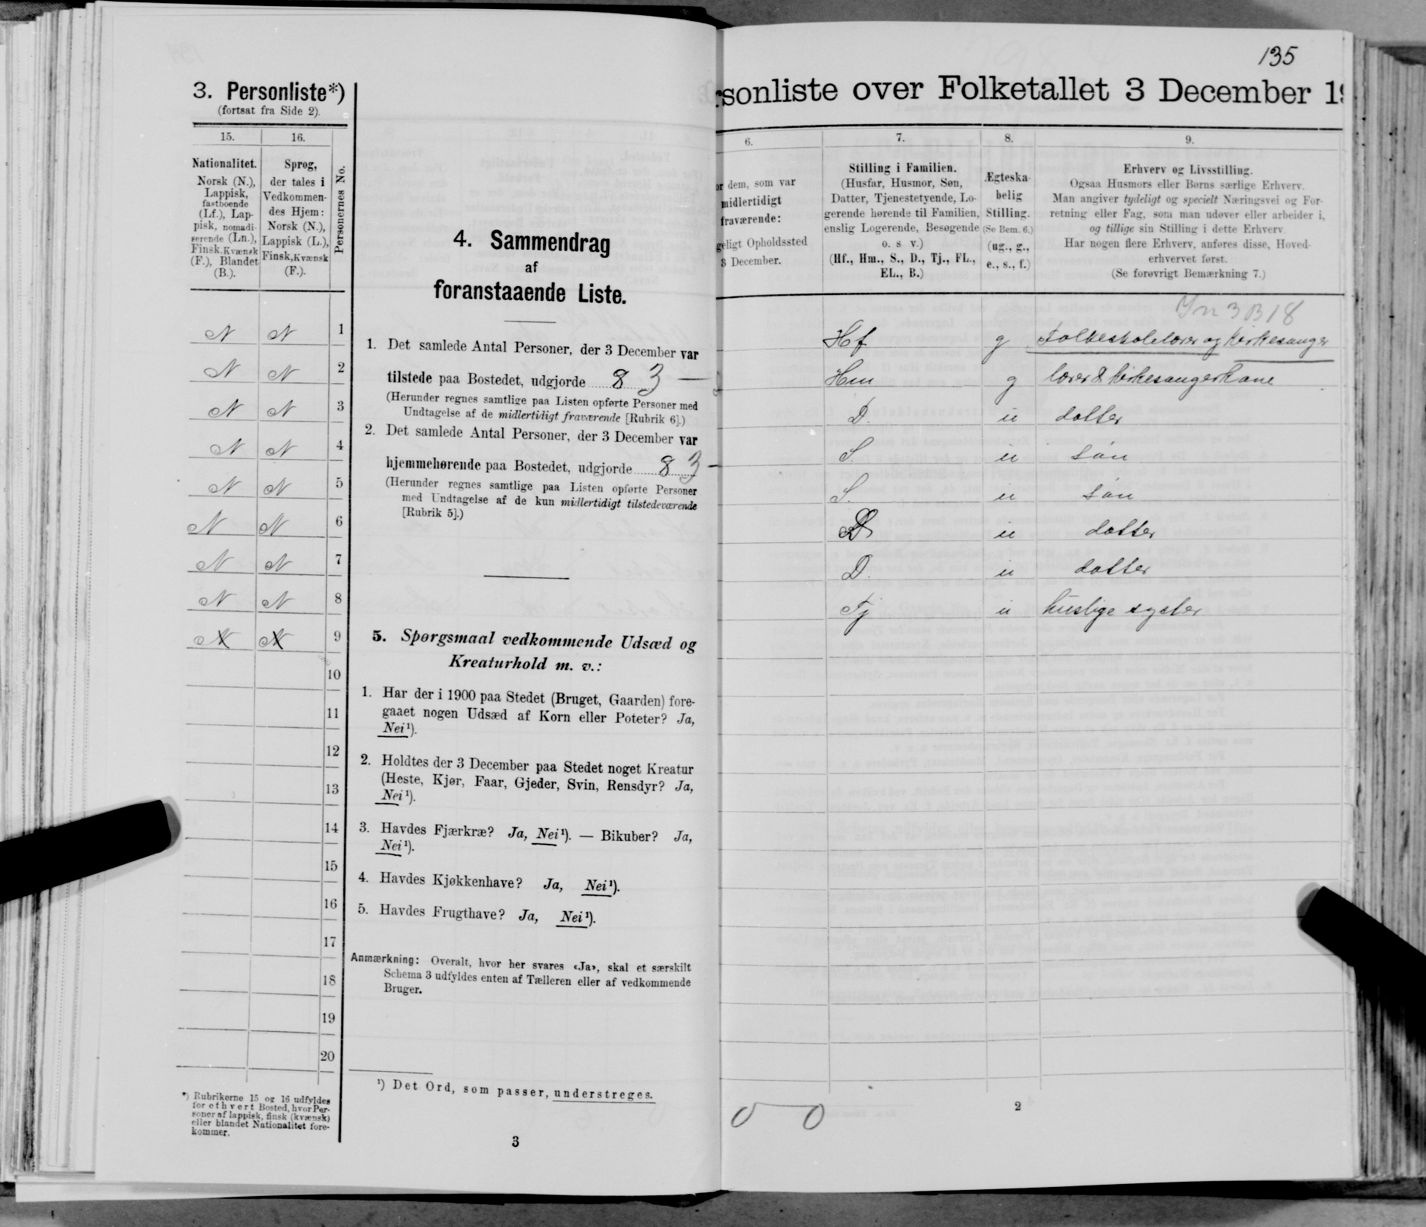 3. Personliste*)
(fortsat fra Side 2).
15.
16.
Nationalitet.
Norsk (N.),
Lappisk,
fastboende
(Lf.), Lap-
pisk, nomadi-
serende (Ln.),
Finsk, Kvænsk
(F.), Blandet
(B.).
Sprog,
der tales i
Vedkommen-
des Hjem:
Norsk (N.),
Lappisk (L.),
Finsk, Kvænsk
(F.).
Personernes No.
N N 1
N N 2
N N 3
N N 4
N N 5
N N 6
N N 7
N N 8
N N 9
10
11
12
13
14
15
16
17
18
19
20
*) Rubrikerne 15 og 16 udfyldes
for ethvert Bosted, hvor Per-
soner af lappisk, finsk (kvænsk)
eller blandet Nationalitet fore-
kommer.
4. Sammendrag
af
foranstaaende Liste.
1. Det samlede Antal Personer, der 3 December var
tilstede paa Bostedet, udgjorde 8 3 —
(Herunder regnes samtlige paa Listen opførte Personer med
Undtagelse af de midlertidigt fraværende [Rubrik 6].)
2. Det samlede Antal Personer, der 3 December var
hjemmehørende paa Bostedet, udgjorde 8 3 -
(Herunder regnes samtlige paa Listen opførte Personer
med Undtagelse af de kun midlertidigt tilstedeværende
[Rubrik 5].)
5. Spørgsmaal vedkommende Udsæd og
Kreaturhold m. v.:
1. Har der i 1900 paa Stedet (Bruget, Gaarden) fore-
gaaet nogen Udsæd af Korn eller Poteter? Ja,
Nei¹).
2. Holdtes der 3 December paa Stedet noget Kreatur
(Heste, Kjør, Faar, Gjeder, Svin, Rensdyr? Ja,
Nei¹).
3. Havdes Fjærkræ? Ja, Nei¹). — Bikuber? Ja,
Nei¹).
4. Havdes Kjøkkenhave? Ja, Nei¹).
5. Havdes Frugthave? Ja, Nei¹).
Anmærkning: Overalt, hvor her svares «Ja», skal et særskilt
Schema 3 udfyldes enten af Tælleren eller af vedkommende
Bruger.
¹) Det Ord, som passer, understreges.
3
135
rsonliste over Folketallet 3 December 19
6.
7.
8.
9.
or dem, som var
midlertidigt
fraværende:
geligt Opholdssted
3 December.
Stilling i Familien.
(Husfar, Husmor, Søn,
Datter, Tjenestetyende, Lo-
gerende hørende til Familien,
enslig Logerende, Besøgende
o. s v.)
(Hf., Hm., S., D., Tj., FL.,
EL., B.)
Ægteska-
belig
Stilling.
(Se Bem. 6.)
(ug., g.,
e., s., f.)
Erhverv og Livsstilling.
Ogsaa Husmors eller Børns særlige Erhverv.
Man angiver tydeligt og specielt Næringsvei og For-
retning eller Fag, som man udøver eller arbeider i,
og tillige sin Stilling i dette Erhverv
Har nogen flere Erhverv, anføres disse, Hoved-
erhvervet først.
(Se forøvrigt Bemærkning 7.)
3 B 18
Hf g Folkeskolelærer og kirkesanger
Hm g lærer & kirkesangerkone
D. u datter
S. u søn
S. u søn
D u datter
D. u datter
Tj u huslige sysler
0 0
2